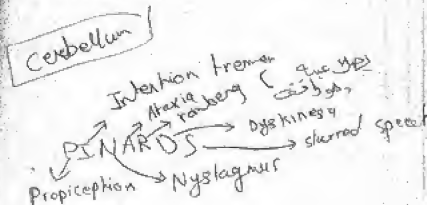 Cerebellum
Intention tremer
Ataxia
romberg (
PINARDS
Dyskinesy
slurred speech
Propiception
Nystagmus